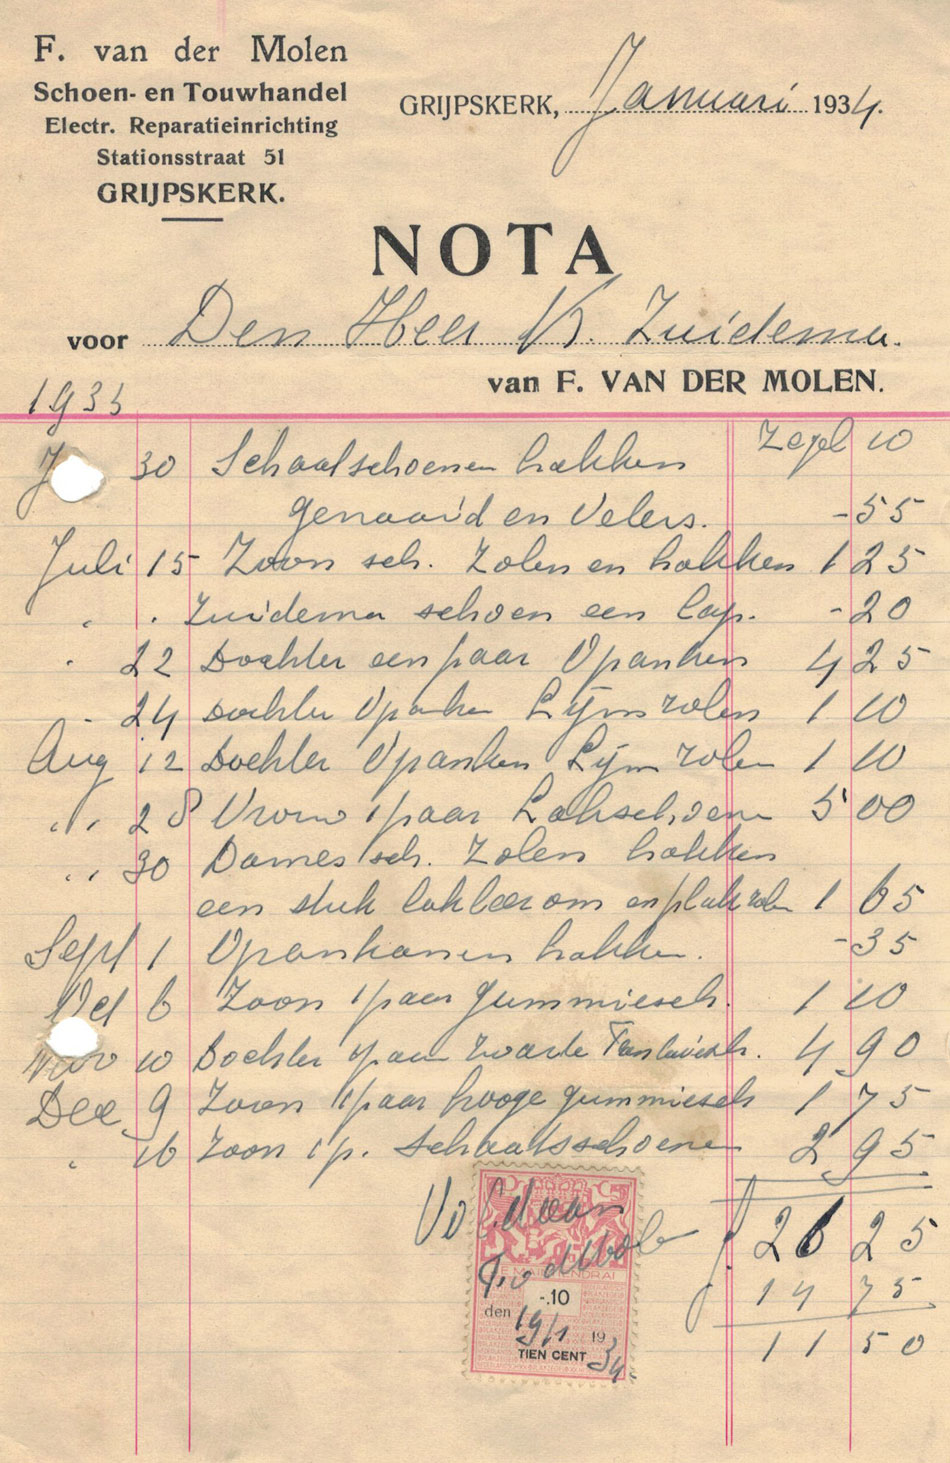 F. van der Molen
Schoen- en Touwhandel
Electr. Reparatieinrichting
Stationsstraat 51
GRIJPSKERK.
GRIJPSKERK, Januari 1934.
NOTA
voor Den Heer K. Zuidema.
van F. VAN DER MOLEN.
1933
Zegel 10
30 Schaatschoenen hakken
genaaid en Velers. -55
Juli 15 Zoon sch. Zolen en hakken 1 25
" . Zuidema schoen een lap. -20
" 22 Dochter een paar Opanken 4 25
" 24 dochter Opanken Lijmzolen 1 10
Aug 12 Dochter Opanken Lijm zolen 1 10
" 28 Vrouw 1 paar Lakschoenen 5 00
" 30 Dames sch. Zolen hakken
een stuk lakleer om en plakzolen 1 65
Sept 1 Opankanen hakken. -35
Oct 6 Zoon 1 paar gummiesch. 1 10
Nov 10 Dochter 1 paar zwarte Fantasiesch. 4 90
Dec 9 Zoon 1 paar hooge gummiesch 1 75
" 16 Zoon 1 p. Schaatsschoenen 2 95
Voldaan
F. v d Mole
f 26 25
14 75
11 50
-.10
den 19/1 1934.
TIEN CENT